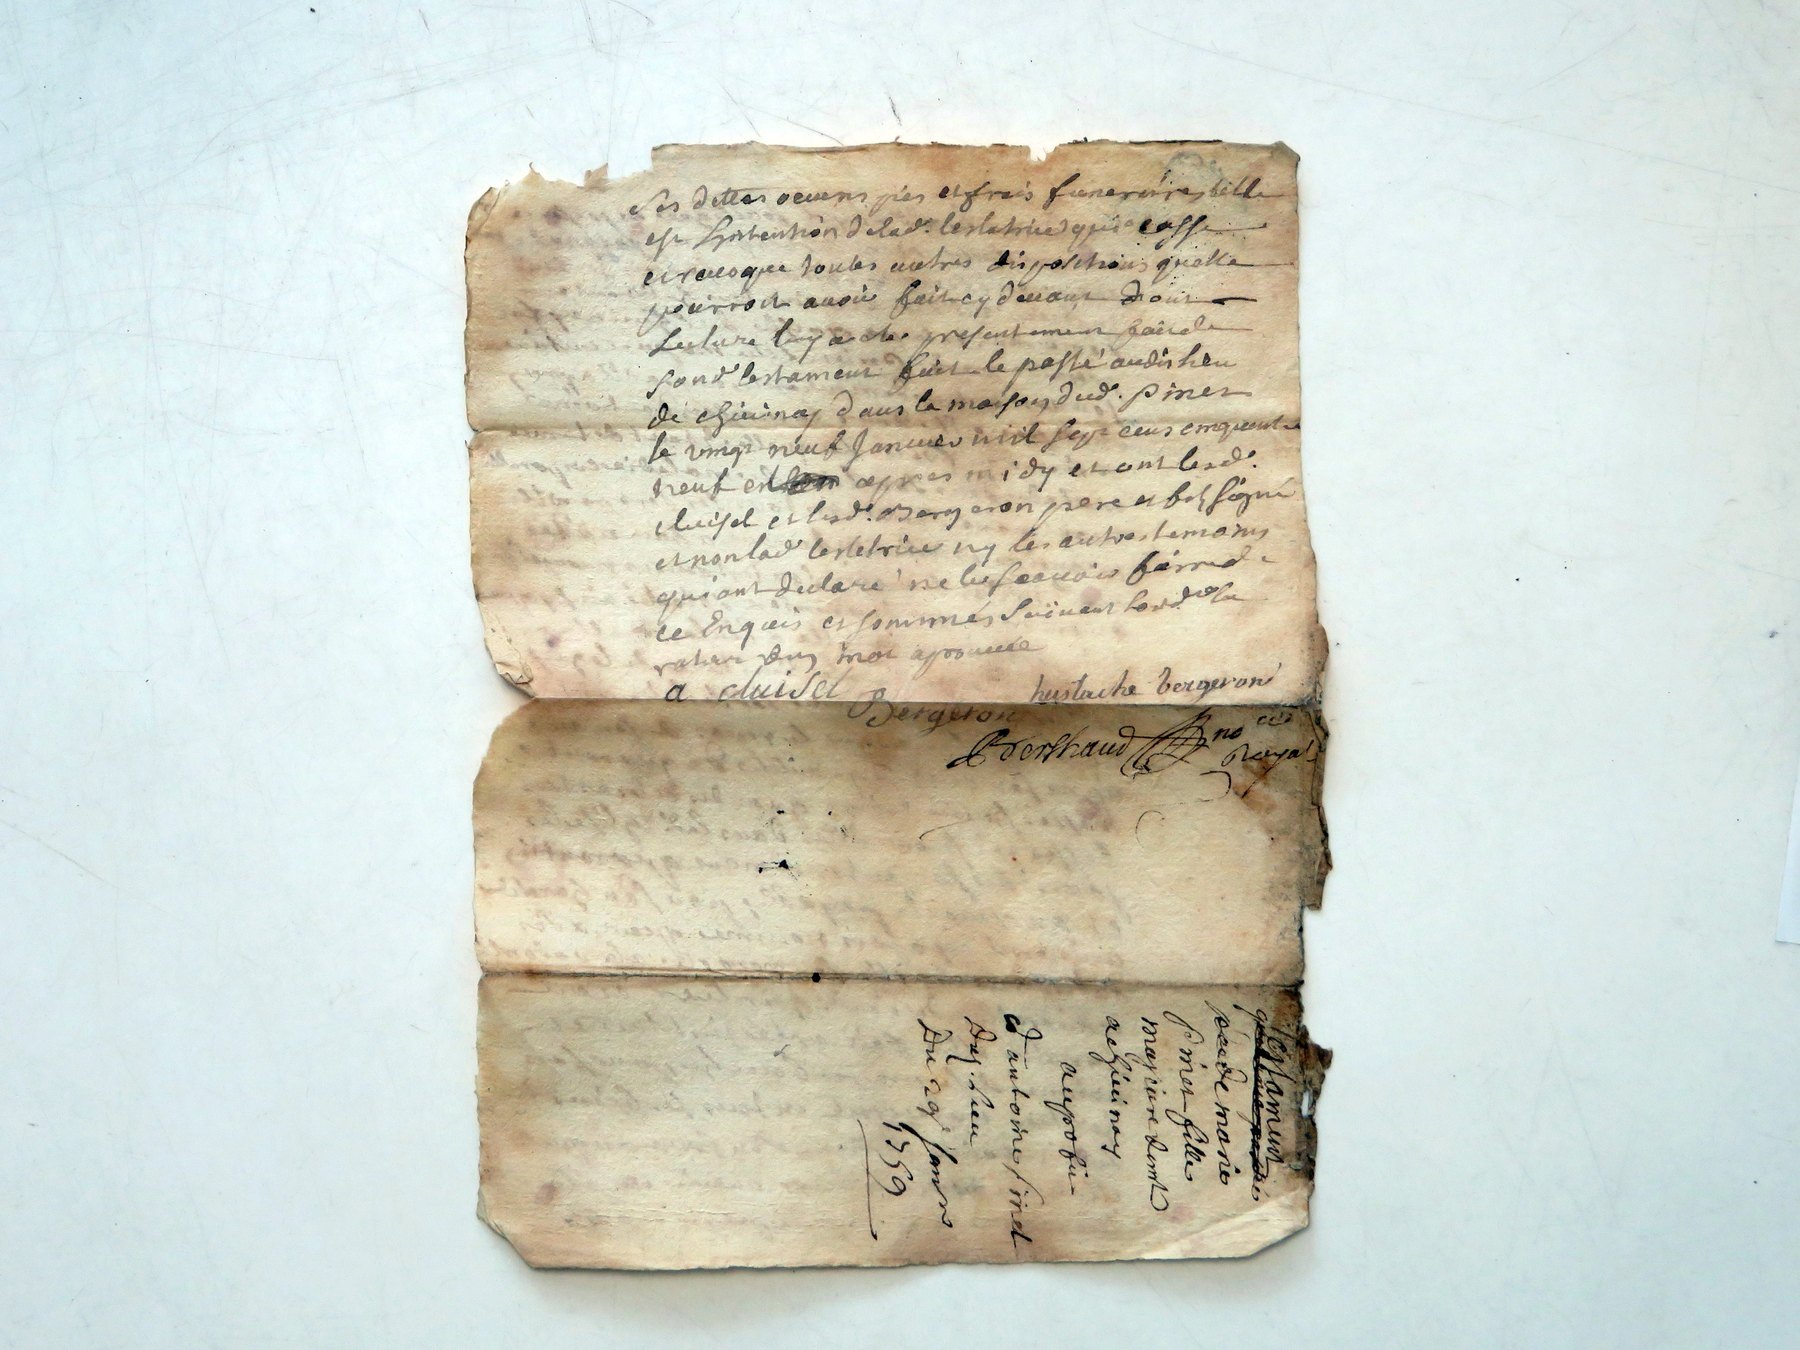 ses dettes oeuvres pies et frais funeraires telle
est L'intention de lad. testatrice qui casse
et revoque toutes autres dispositions quelle
pourroit avoir fait cy devant dont
Lecture luy a ete presentement faitte
sond. testament fait le passé audit lieu
de chivinay dans la maison dud. pinet
le vingt neuf Janvier mil sept cens cinquante
neuf et apres midy et ont lesd.
cluisel et lesd. Bergeron pere et fils signé
et non lad. testatrice ny les autres temoins
qui ont declaré ne le scavoir faire de
ce Enquis et sommés suivant lord.ce la
rature dun mot aprouvée
a cluisel
Bergeron
hustache bergeron
Berthaud no.re
Royal
Testament
par de marie
pinet fille
majeure demt
a chivinay
au profit
d'antoine pinet
dud. Lieu
Du 29 Janvr
1759